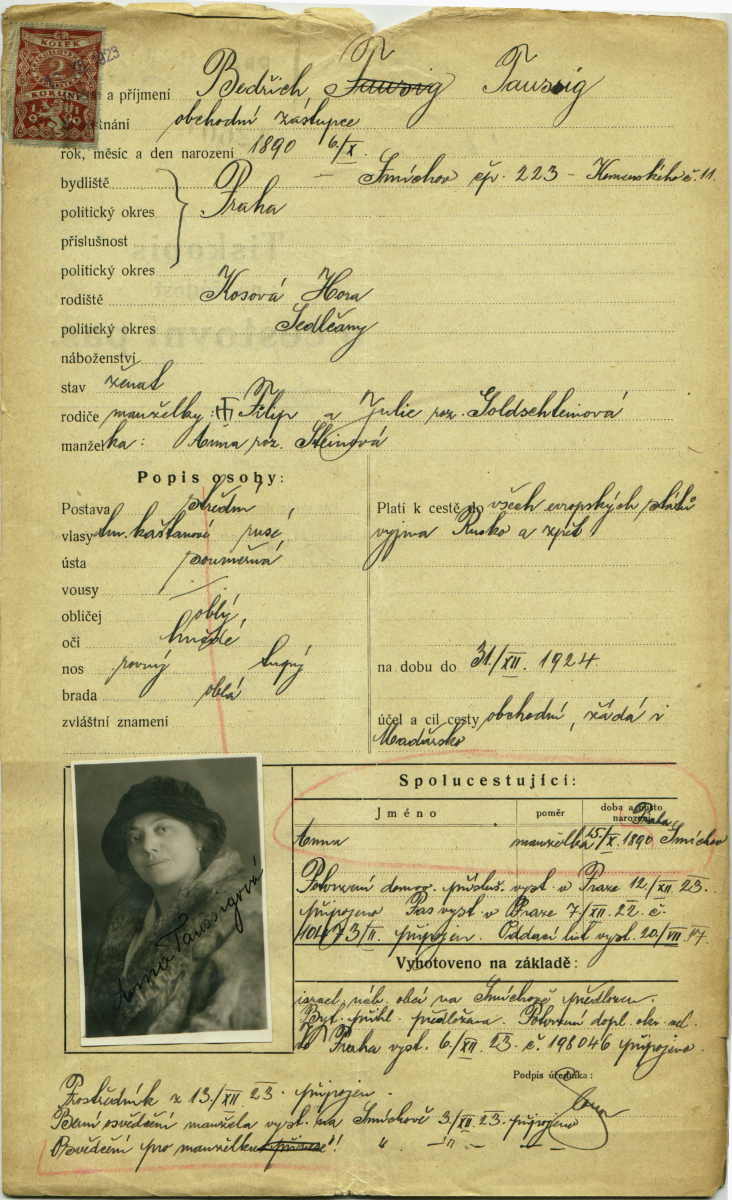 KOLEK
2
KORUNY
1923
a příjmení Bedřich Taussig Taussig
stnání obchodní zástupce
rok, měsíc a den narození 1890 6/X.
bydliště Praha – Smíchov čp. 223 – Komenského č. 11.
politický okres
příslušnost
politický okres
rodiště Kosová Hora
politický okres Sedlčany
náboženství
stav ženat
rodiče manželky: Filip a Julie roz. Goldschteinová
manželka: Anna roz. Steinová
Popis osoby:
Postava střední
vlasy tm. kaštanové rusé,
ústa souměrná
vousy
obličej oblý
oči hnědé
nos rovný tupý
brada oblá
zvláštní znamení
Platí k cestě do všech evropských států
vyjma Rusko a zpět
na dobu do 31./XII. 1924.
účel a cíl cesty obchodní, žádá i
Maďarsko
Spolucestující:
Jméno poměr doba a místo narození
Praha
Anna manželka 15./X. 1890 Smíchov
Potvrzení domov. přísluš. vyst. v Praze 12./XII 23.
připojeno Pas vyst. v Praze 7/XII. 22. č.
10473/II. připojen. Oddací list vyst. 20/VII. 17.
Vyhotoveno na základě:
israel. náb. obcí na Smíchově předložen.
Byt. přihl. předložena. Potvrzení dopl. okr. vel.
Praha vyst. 6./XII. 23. č. 198046 připojeno.
Podpis úředníka:
Prostředník z 13./XII 23. připojen.
Berní osvědčení manžela vyst. na Smíchově 3/XII. 23. připojeno
Osvědčení pro manželku " –"– –
Anna Taussigová